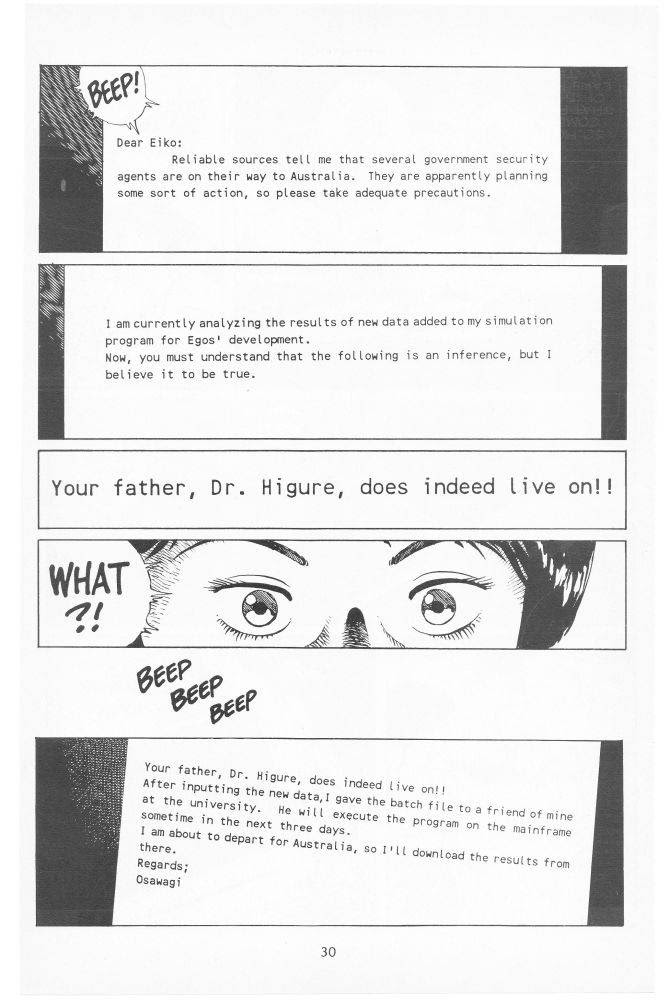 BEEP!
Dear Eiko:
Reliable sources tell me that several government security
agents are on their way to Australia. They are apparently planning
some sort of action, so please take adequate precautions.
I am currently analyzing the results of new data added to my simulation
program for Egos' development.
Now, you must understand that the following is an inference, but I
believe it to be true.
Your father, Dr. Higure, does indeed live on!!
WHAT
?!
BEEP
BEEP
BEEP
Your father, Dr. Higure, does indeed live on!!
After inputting the new data,I gave the batch file to a friend of mine
at the university. He will execute the program on the mainframe
sometime in the next three days.
I am about to depart for Australia, so I'll download the results from
there.
Regards;
Osawagi
30